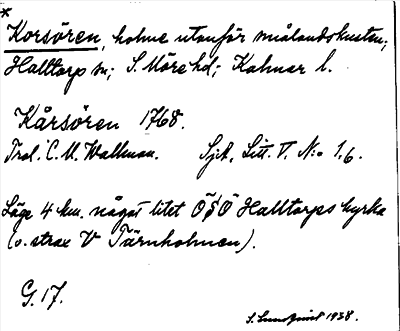 *
Korsören, holme utanför smålandskusten;
Halltorp sn; S. Möre hd; Kalmar l.
Kårsören 1768.
Tral. C. M. Wallman. Sjök. Litt. V. N:o 16.
Läge 4 km. något litet OSO Halltorps kyrka
(o. strax V Tärnholmen).
G. 17.
S. Lundqvist 1938.